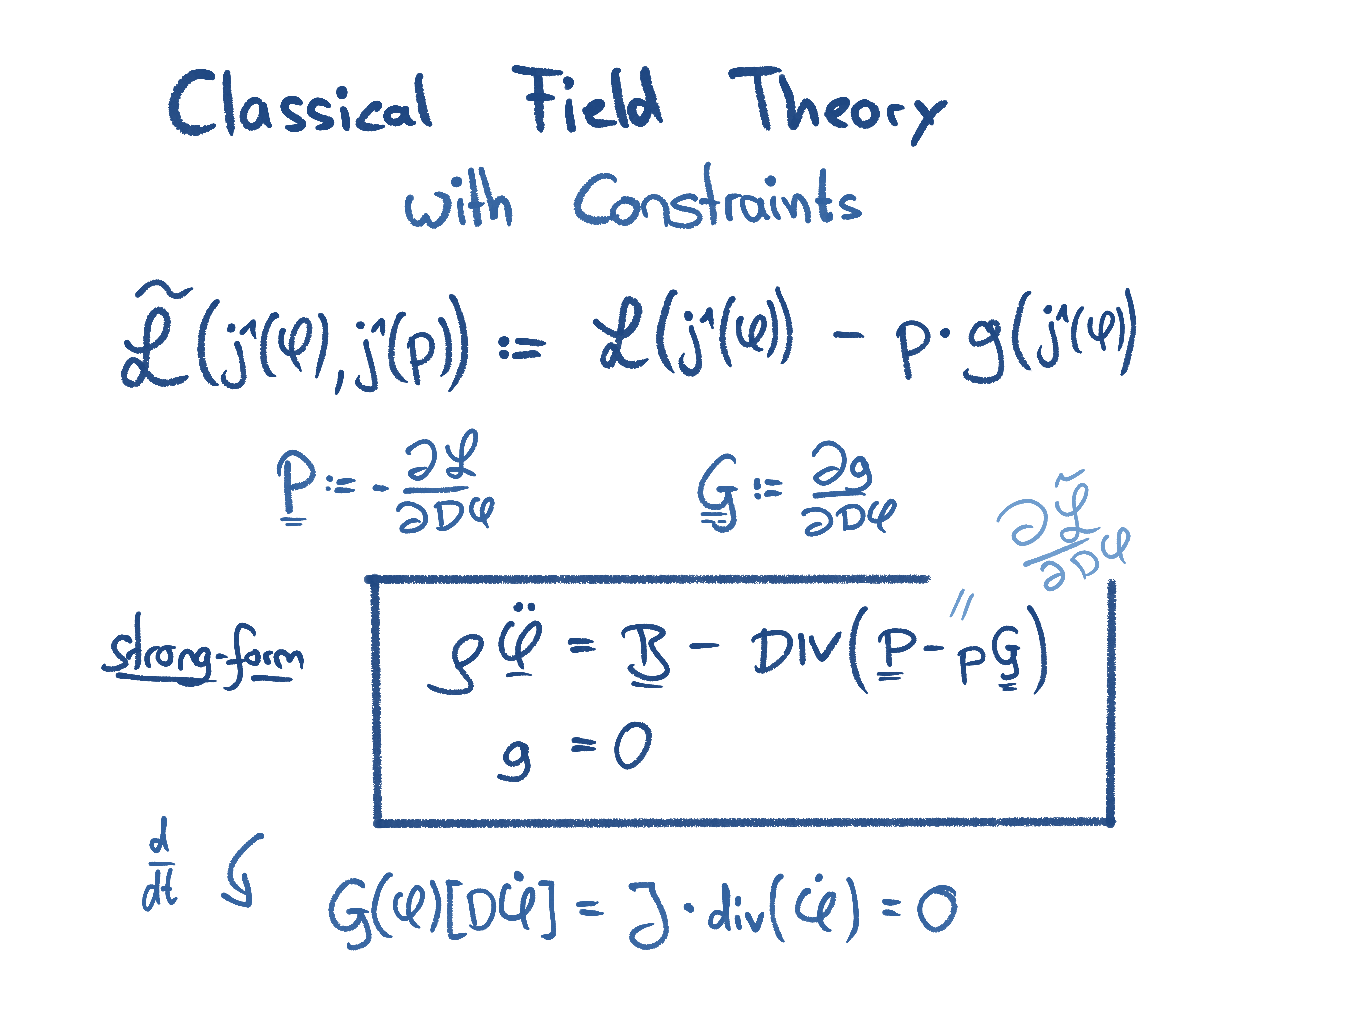 Classical Field Theory
with Constraints
ℒ̃(j¹(φ), j¹(p)) := ℒ(j¹(φ)) - p·g(j¹(φ))
P := - ∂ℒ/∂Dφ
G := ∂g/∂Dφ
∂ℒ̃/∂Dφ
=
strong-form
ρφ̈ = B - DIV(P - pG)
g = 0
d/dt
G(φ)[Dφ̇] = J · div(φ̇) = 0